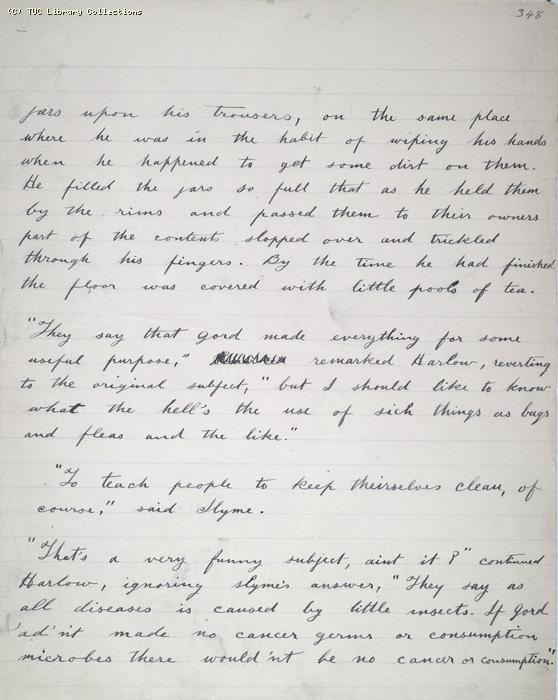 (C) TUC Library Collections
348
jars upon his trousers, on the same place
where he was in the habit of wiping his hands
when he happened to get some dirt on them.
He filled the jars so full that as he held them
by the rims and passed them to their owners
part of the contents slopped over and trickled
through his fingers. By the time he had finished
the floor was covered with little pools of tea.
"They say that gord made everything for some
useful purpose," remarked Harlow, reverting
to the original subject, "but I should like to know
what the hell's the use of sich things as bugs
and fleas and the like."
"To teach people to keep theirselves clean, of
course," said Slyme.
"That's a very funny subject, aint it?" continued
Harlow, ignoring Slyme's answer, "They say as
all diseases is caused by little insects. If Gord
'ad'n't made no cancer germs or consumption
microbes there would'nt be no cancer or consumption."